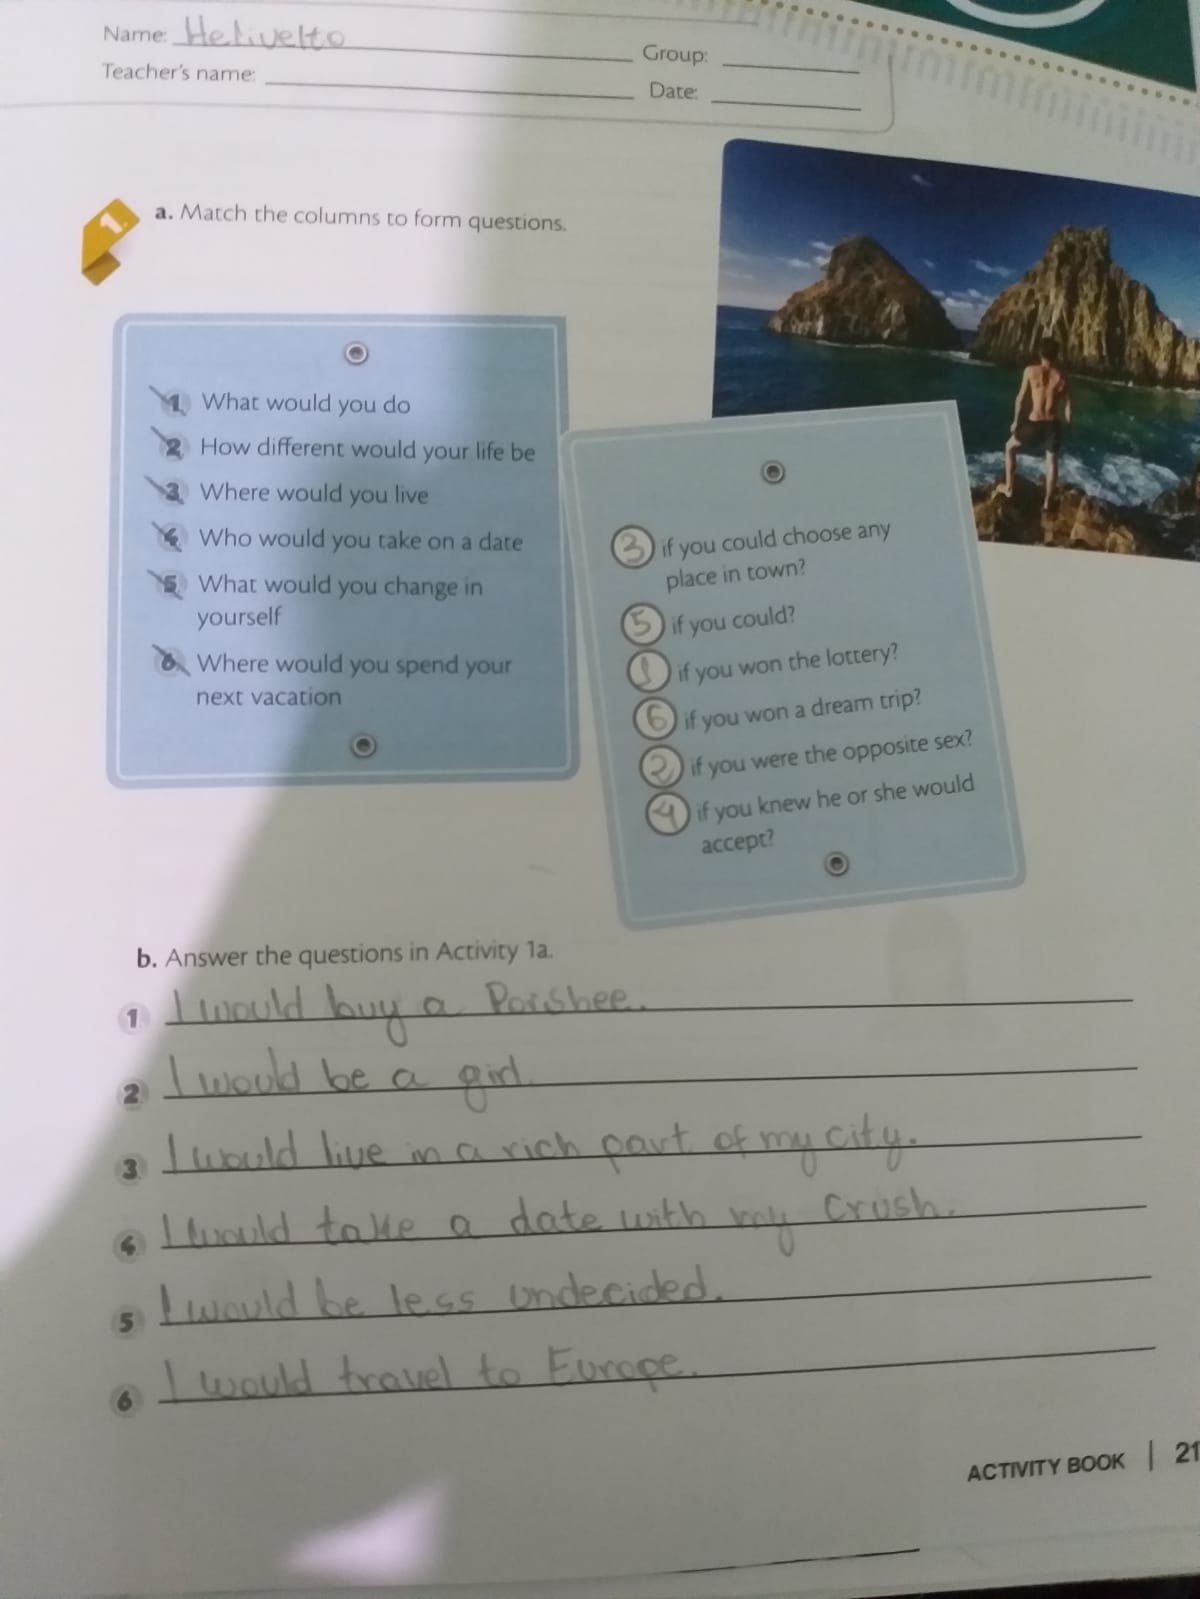 Name: Helivelto
Group:
Teacher's name:
Date:
1.
a. Match the columns to form questions.
1. What would you do
2. How different would your life be
3. Where would you live
4. Who would you take on a date
5. What would you change in
yourself
6. Where would you spend your
next vacation
3 if you could choose any
place in town?
5 if you could?
1 if you won the lottery?
6 if you won a dream trip?
2 if you were the opposite sex?
4 if you knew he or she would
accept?
b. Answer the questions in Activity 1a.
1 I would buy a Porshee.
2 I would be a girl.
3 I would live in a rich part of my city.
4 I would take a date with my crush.
5 I would be less undecided.
6 I would travel to Europe.
ACTIVITY BOOK | 21